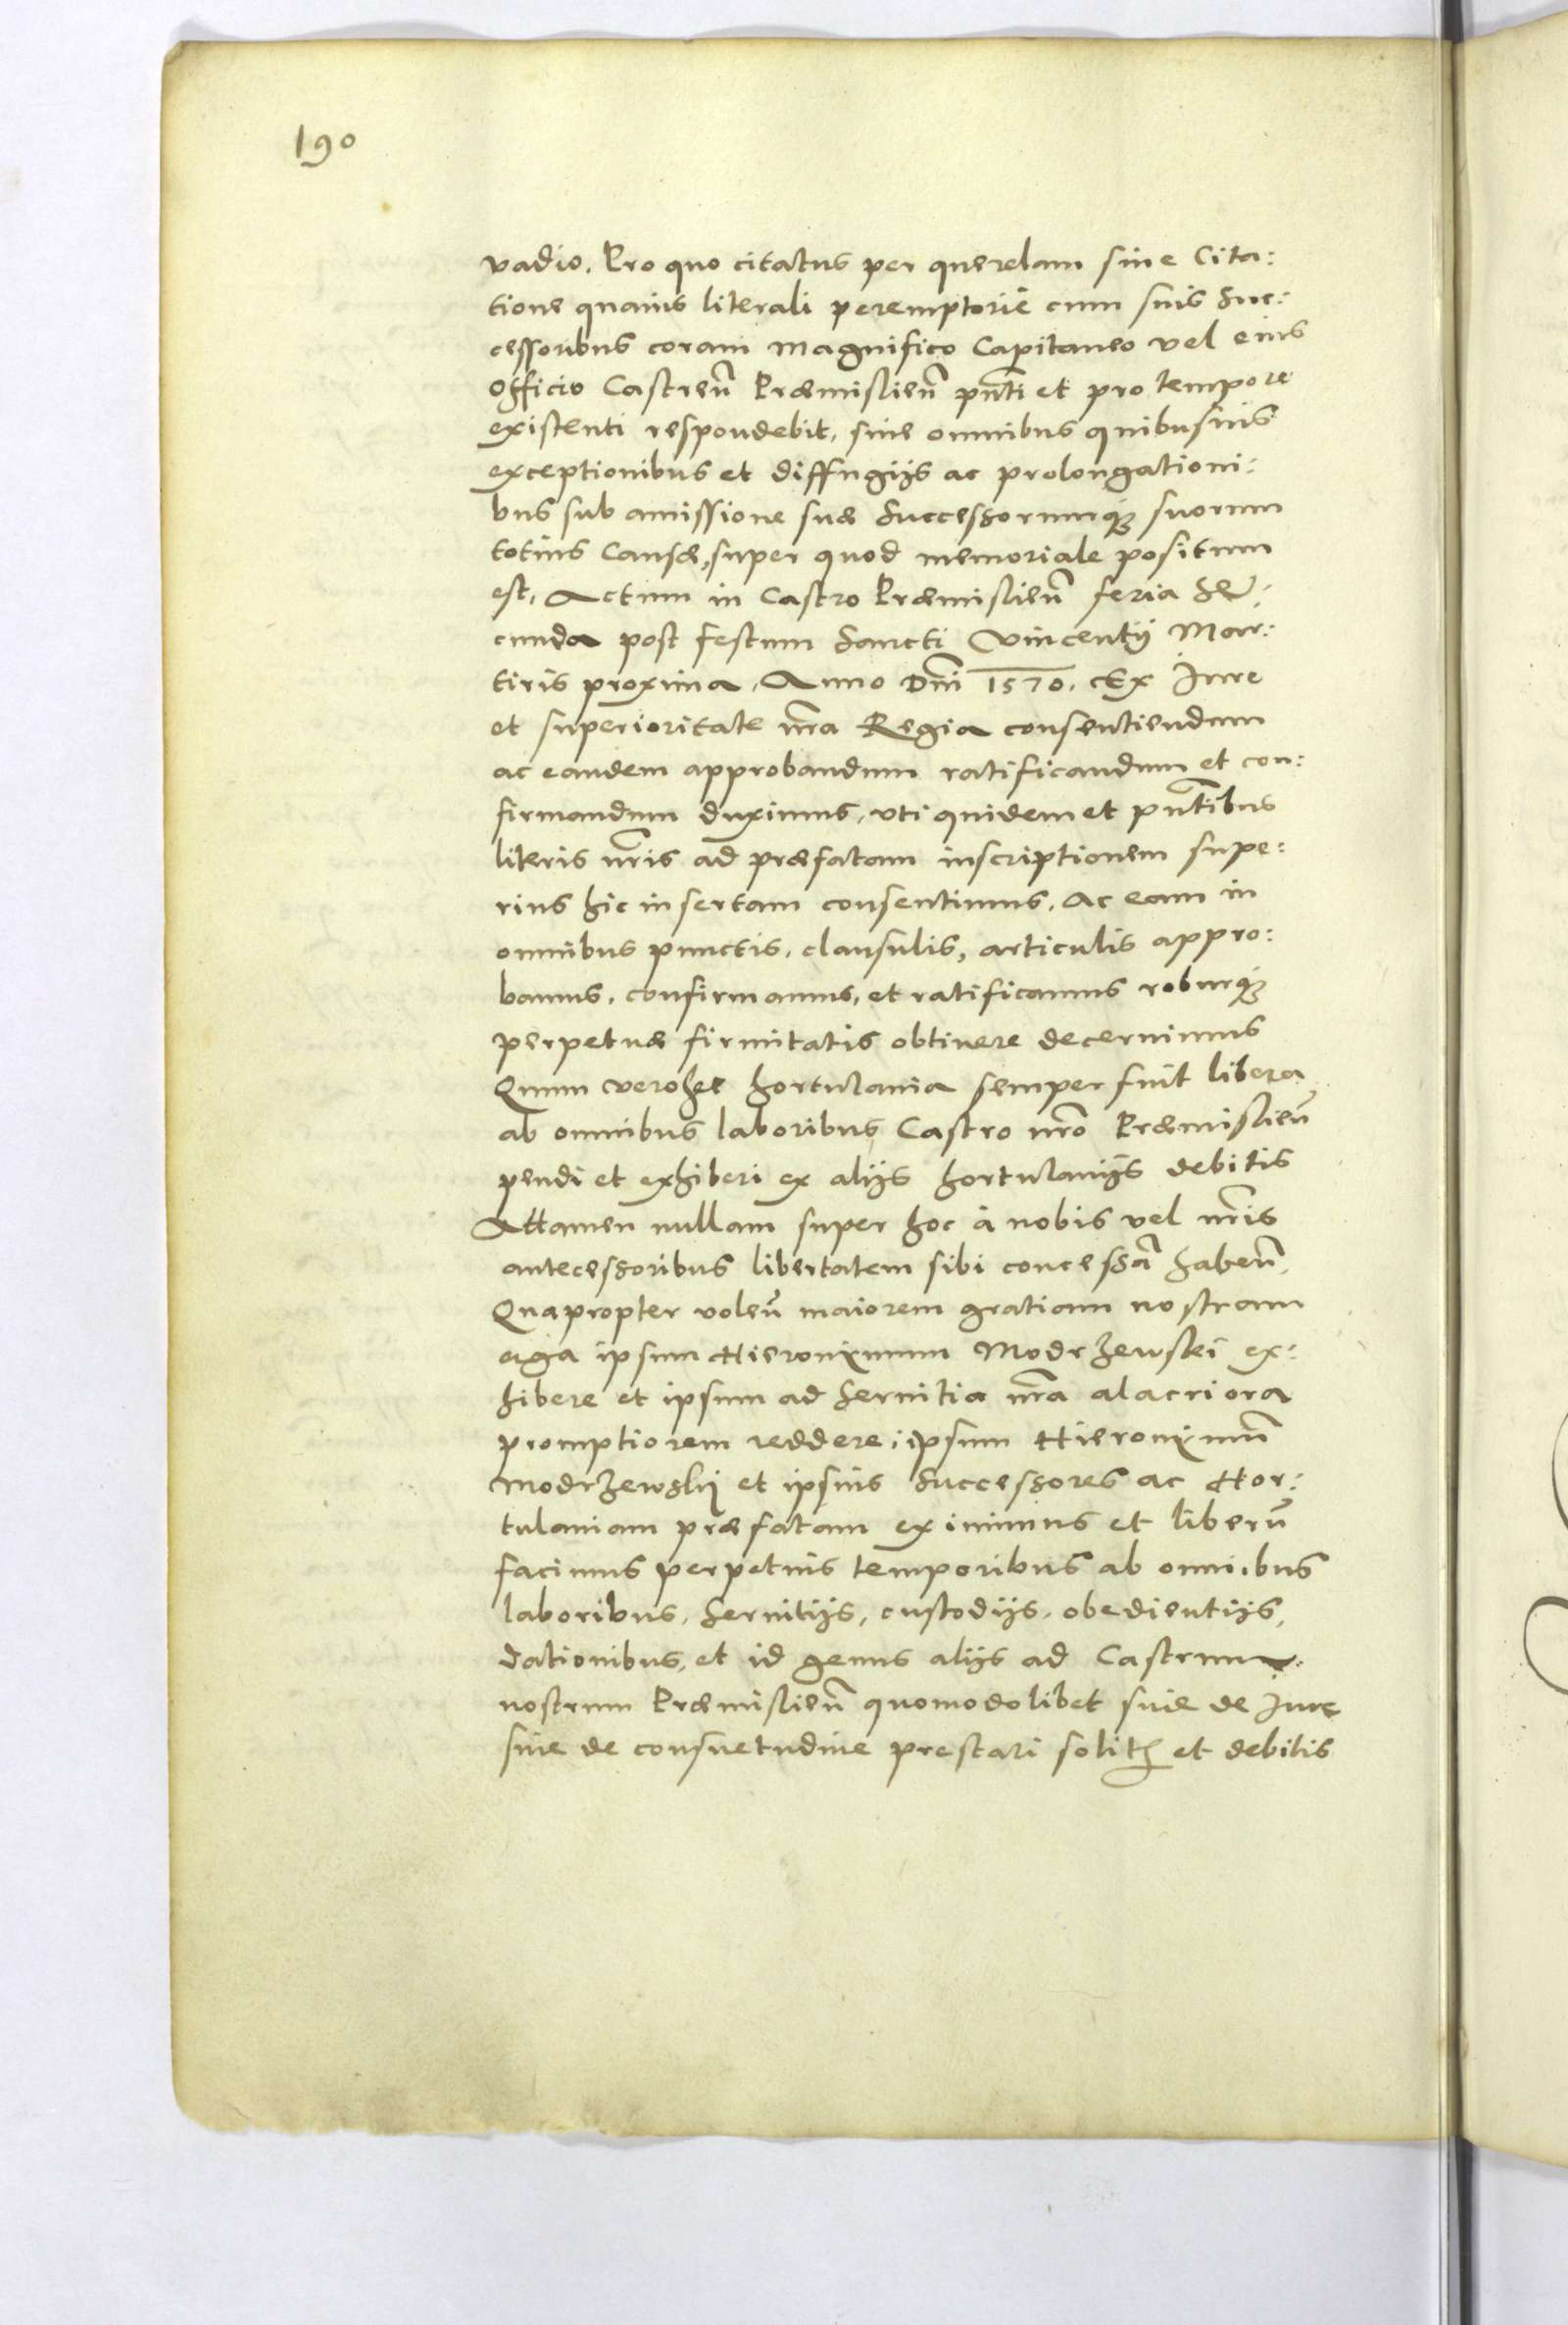 190
vadio. Pro quo citatus per querelam sine Cita:
tione quauis literali peremptorie cum suis Suc:
cessoribus coram Magnifico Capitaneo vel eius
Officio Castren̄ Præmislien̄ pn̄ti et pro tempore
existenti respondebit, sine omnibus quibusuis
exceptionibus et diffugijs ac prolongationi:
bus sub amissione suæ Successorumq3 suorum
totius Causæ, super quod memoriale positum
est, Actum in Castro Præmislien̄ feria Se:
cunda post festum Sancti Vincentij Mar:
tiris proxima, Anno Dn̄i 1570. Ex Iure
et superioritate n̄ra Regia consentiendum
ac eandem approbandum ratificandum et con:
firmandum duximus, vti quidem et pn̄tibus
literis n̄ris ad præfatam inscriptionem supe:
rius hic insertam consentimus. Ac eam in
omnibus punctis, clausulis, articulis appro:
bamus, confirmamus, et ratificamus roburq3
perpetuæ firmitatis obtinere decernimus
Quum vero hec hortulania semper fuit libera
ab omnibus laboribus Castro nr̄o Præmislien̄
pendi et exhiberi ex alijs hortulanijs debitis
Attamen nullam super hoc à nobis vel n̄ris
antecessoribus libertatem sibi concessā haben̄,
Quapropter volen̄ maiorem gratiam nostram
erga ipsum Hieronimum Modrzewski ex:
hibere et ipsum ad Seruitia n̄ra alacriora
promptiorem reddere, ipsum Hieronimū
Modrzewskij et ipsius Successores ac Hor:
tulaniam præfatam eximimus et liberū
facimus perpetuis temporibus ab omnibus
laboribus, Seruitijs, custodijs, obedientijs,
dationibus, et id genus alijs ad Castrum
nostrum Præmislien̄ quomodolibet siue de Iure
siue de consuetudine prestari solitis et debitis